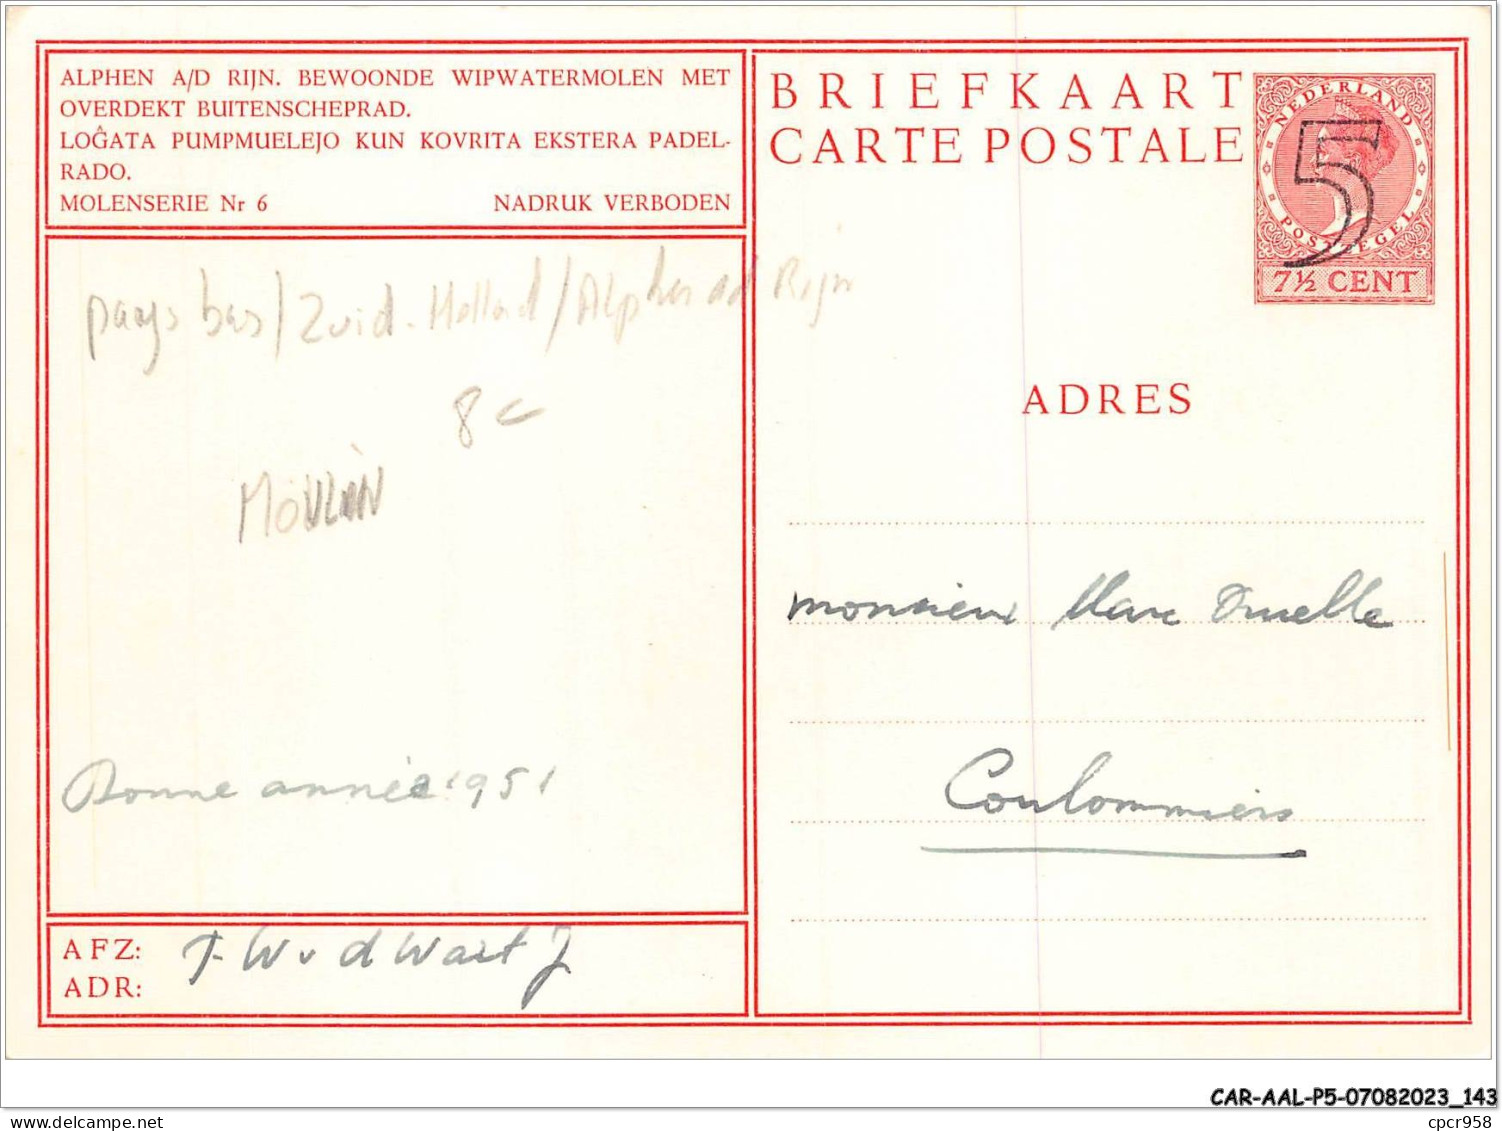 ALPHEN A/D RIJN. BEWOONDE WIPWATERMOLEN MET
OVERDEKT BUITENSCHEPRAD.
LOĜATA PUMPMUELEJO KUN KOVRITA EKSTERA PADEL-
RADO.
MOLENSERIE Nr 6 NADRUK VERBODEN
BRIEFKAART
CARTE POSTALE
NEDERLAND
5
POSTZEGEL
7½ CENT
pays bas / Zuid-Holland / Alphen ad Rijn
8c
MOULIN
ADRES
monsieur Marc Druelle
Coulommiers
Bonne année 1951
AFZ: J. W v d Wart J
ADR:
CAR-AAL-P5-07082023_143
cpcr958